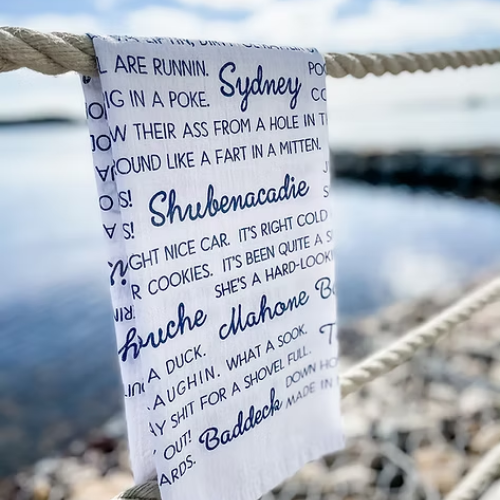 L ARE RUNNIN. Sydney
IG IN A POKE.
OW THEIR ASS FROM A HOLE IN T
OUND LIKE A FART IN A MITTEN.
Shubenacadie
GHT NICE CAR. IT'S RIGHT COLD
R COOKIES. IT'S BEEN QUITE A S
SHE'S A HARD-LOOKI
ouche Mahone B
A DUCK.
AUGHIN. WHAT A SOOK.
AY SHIT FOR A SHOVEL FULL.
OUT! Baddeck DOWN HO
ARDS. MADE IN